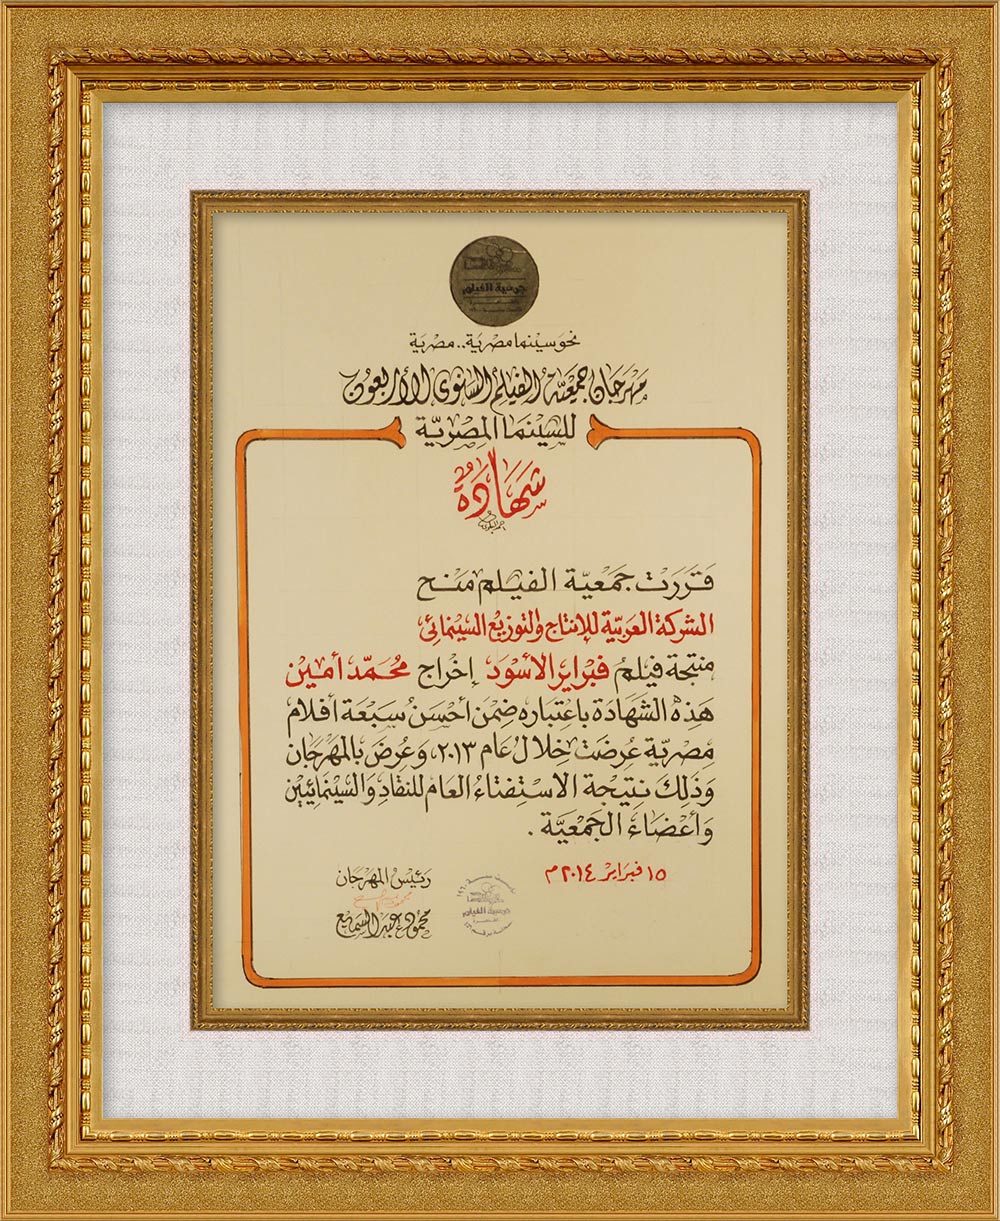 جمعية الفيلم
نحو سينما مصرية.. مصرية
مهرجان جمعية الفيلم السنوى الأربعون
للسينما المصرية
شهادة
قررت جمعية الفيلم منح
الشركة العربية للإنتاج والتوزيع السينمائى
منتجة فيلم فبراير الأسود إخراج محمد أمين
هذه الشهادة باعتباره ضمن أحسن سبعة أفلام
مصرية عرضت خلال عام ٢٠١٣، وعرض بالمهرجان
وذلك نتيجة الاستفتاء العام للنقاد والسينمائيين
وأعضاء الجمعية.
١٥ فبراير ٢٠١٤م
رئيس المهرجان
محمود عبد السميع
جمعية الفيلم